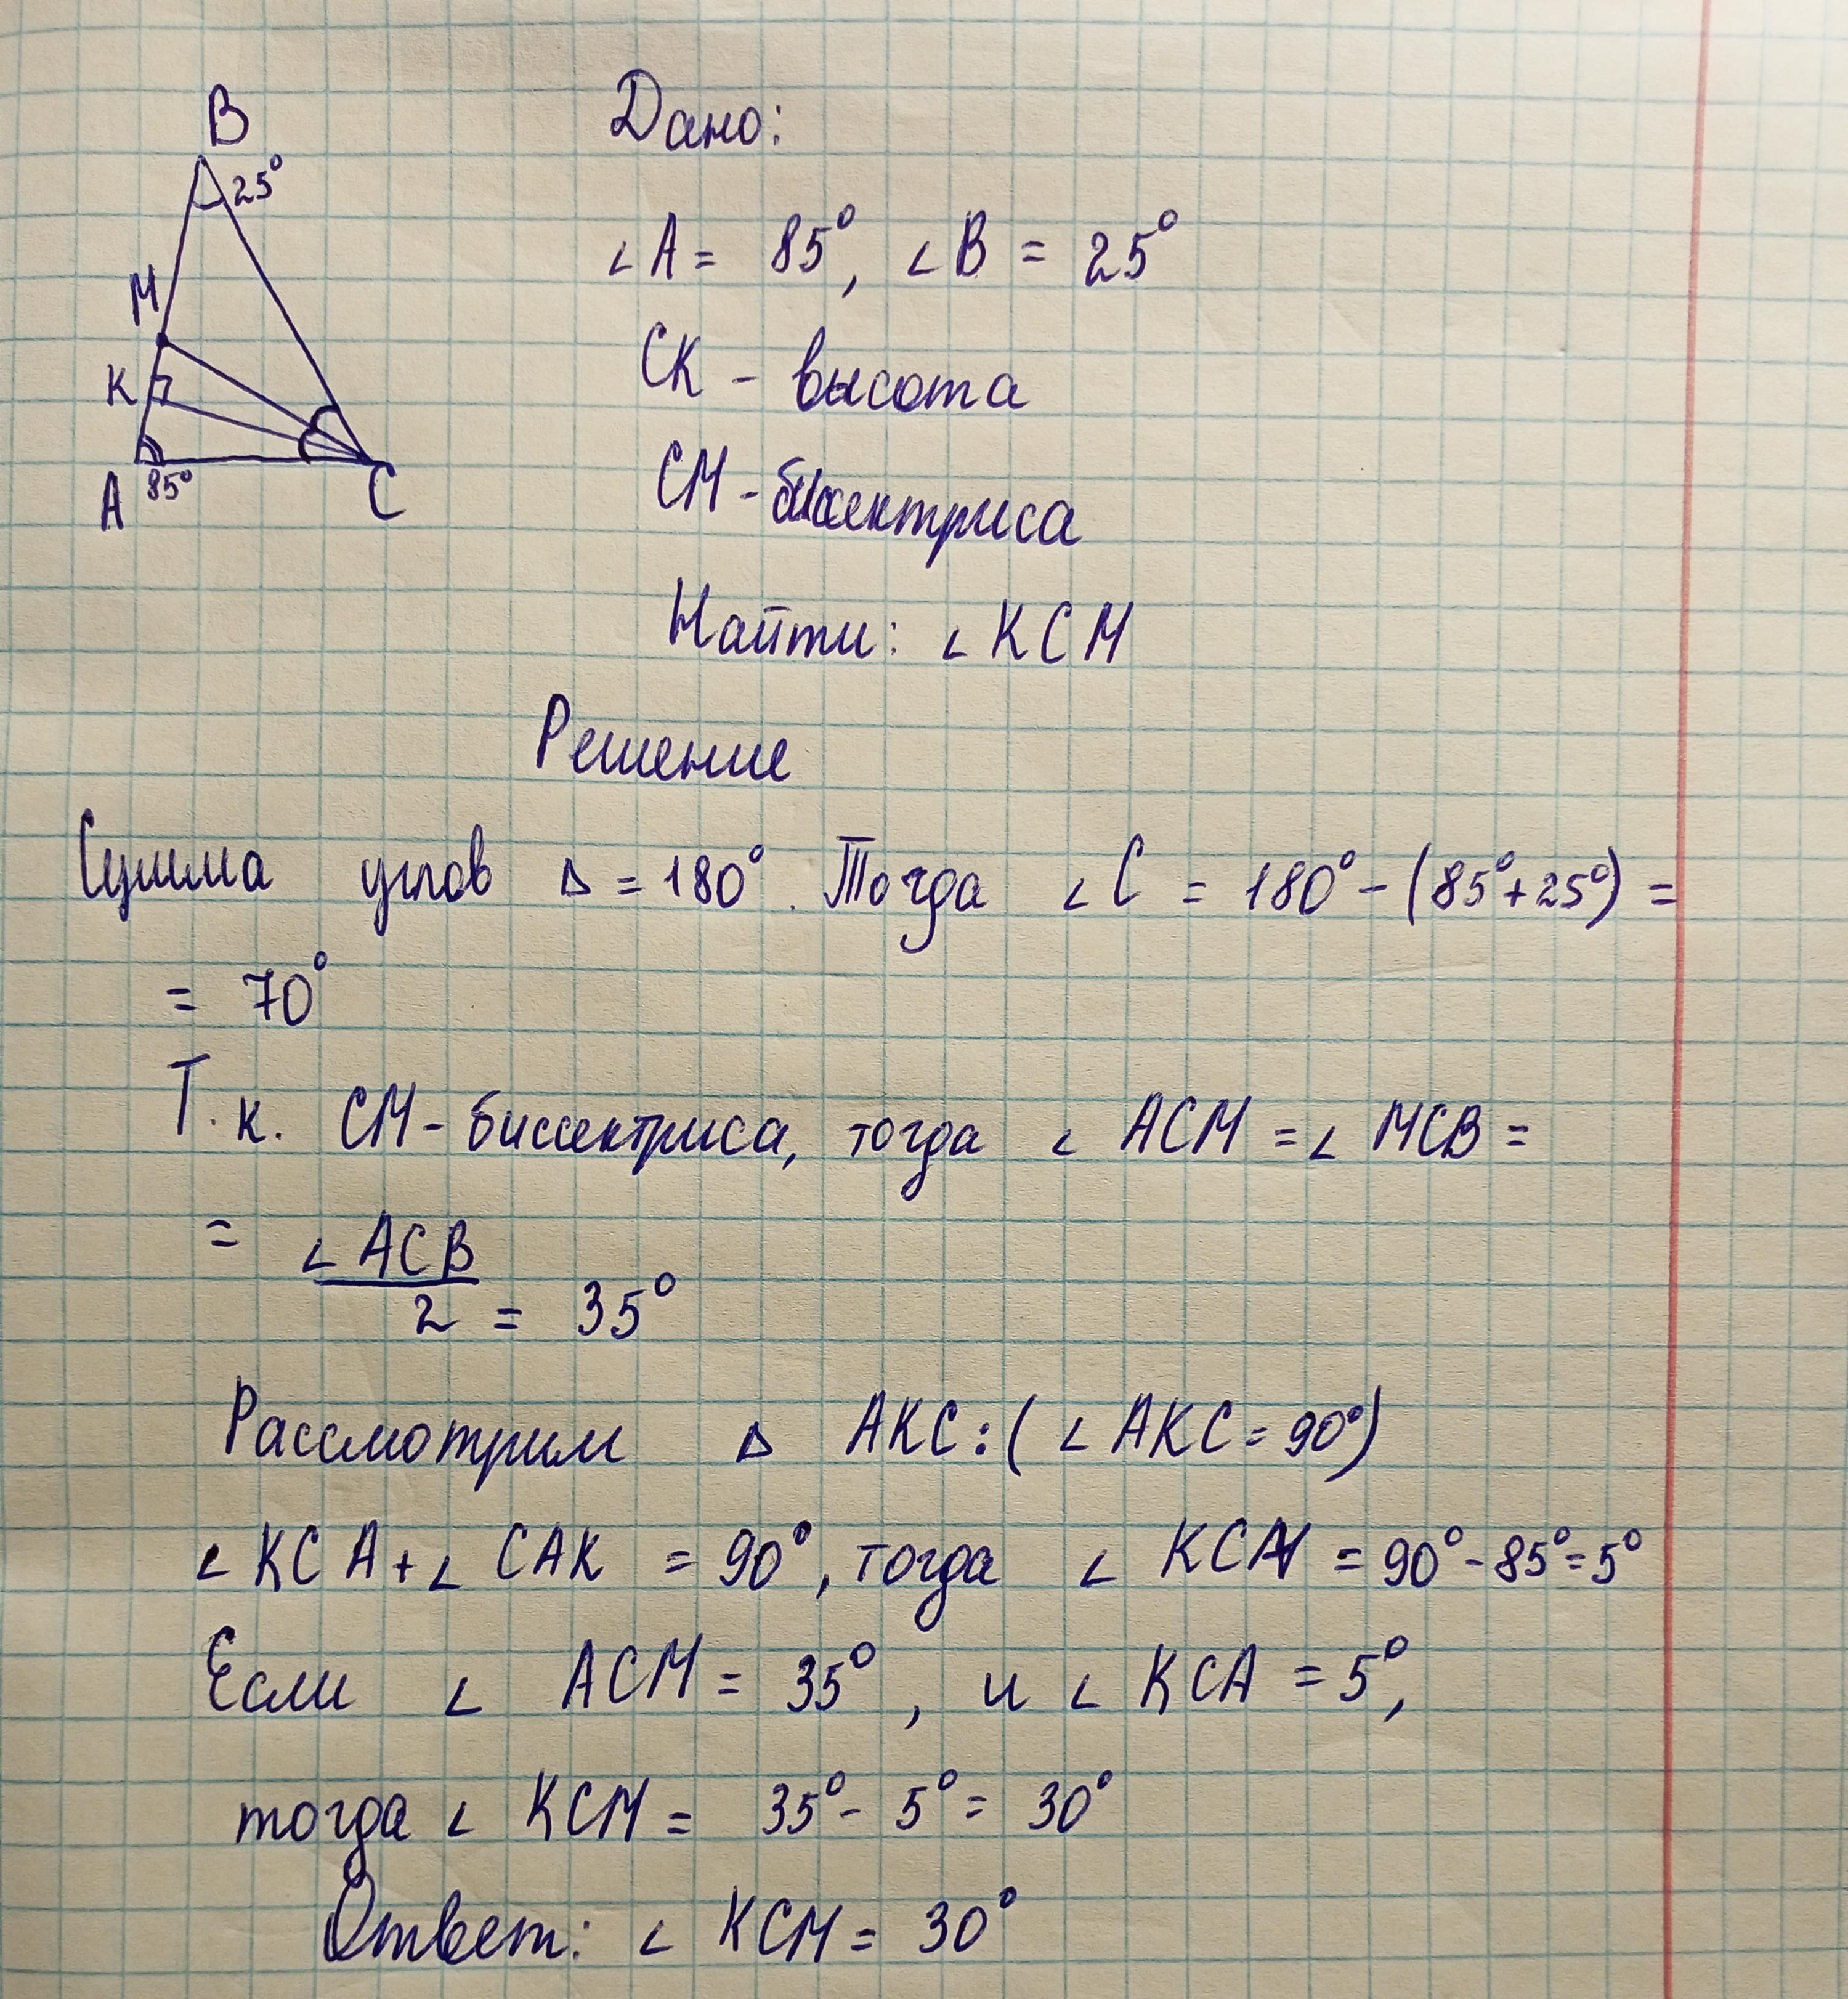 B
25°
M
K
A 85° C
Дано:
∠A = 85°, ∠B = 25°
CK - высота
CM - биссектриса
Найти: ∠KCM
Решение
Сумма углов Δ = 180°. Тогда ∠C = 180° - (85° + 25°) =
= 70°
Т.к. CM - биссектриса, тогда ∠ACM = ∠MCB =
= ∠ACB
2 = 35°
Рассмотрим Δ AKC: (∠AKC = 90°)
∠KCA + ∠CAK = 90°, тогда ∠KCA = 90° - 85° = 5°
Если ∠ACM = 35°, и ∠KCA = 5°,
тогда ∠KCM = 35° - 5° = 30°
Ответ: ∠KCM = 30°